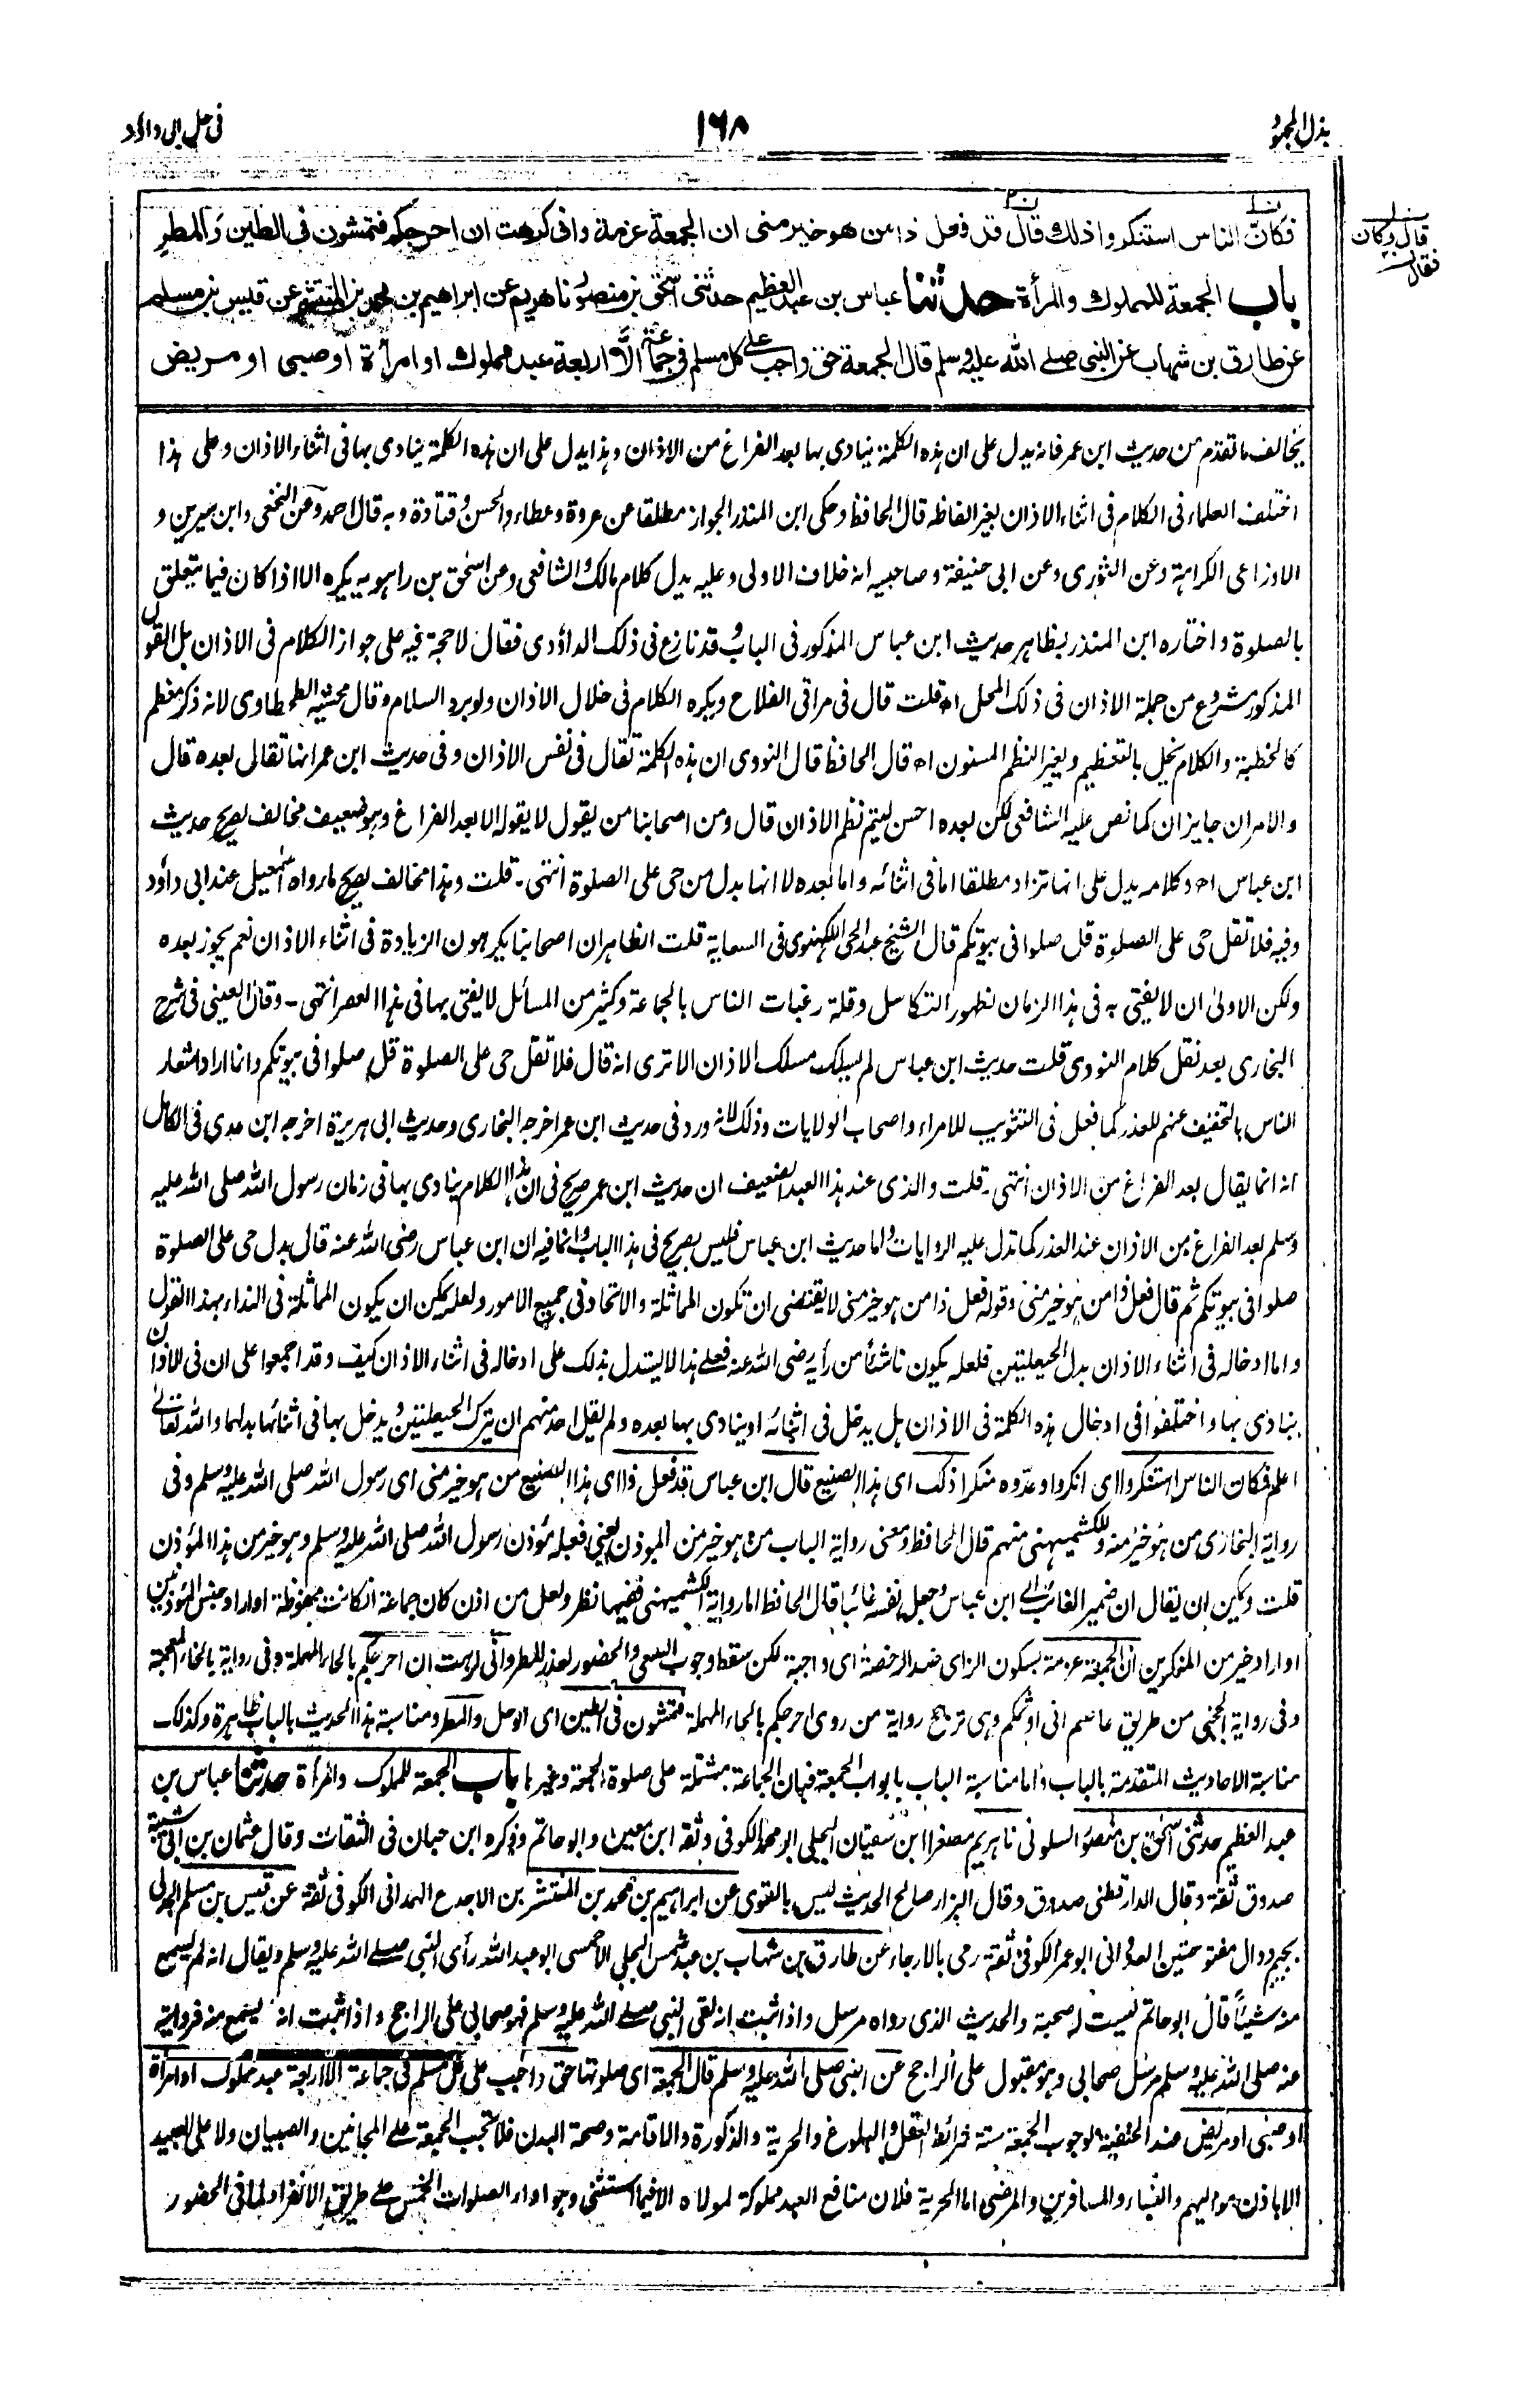 بذل المجهود
١٦٨
فی حل ابی داؤد
قال وکان
فقال
فکان الناس استنکروا ذلك قال قد فعل ذا من هو خیر منی ان الجمعة عزمة وانی کرهت ان احرجکم فتمشون فی الطین والمطر
باب الجمعة للمملوك والمرأة حدثنا عباس بن عبد العظیم حدثنی اسحٰق بن منصور نا هریم عن ابراهیم بن محمد بن المنتشر عن قیس بن مسلم
عن طارق بن شهاب عن النبی صلے الله علیه وسلم قال الجمعة حق واجب علی کل مسلم فی جماعة الا اربعة عبد مملوك او امرأة او صبی او مریض
یخالف ما تقدم من حدیث ابن عمر فانه یدل علی ان هذه الکلمة ینادی بها بعد الفراغ من الاذان وهذا یدل علی ان هذه الکلمة ینادی بها فی اثناء الاذان وعلی هذا
اختلف العلماء فی الکلام فی اثناء الاذان بغیر الفاظه قال الحافظ وحکی ابن المنذر الجواز مطلقا عن عروة وعطاء والحسن وقتادة وبه قال احمد وعن النخعی وابن سیرین و
الاوزاعی الکراهة وعن الثوری وعن ابی حنیفة وصاحبیه انه خلاف الاولی وعلیه یدل کلام مالك والشافعی وعن اسحٰق بن راهویه یکره الا اذا کان فیما یتعلق
بالصلوة واختاره ابن المنذر بظاهر حدیث ابن عباس المذکور فی الباب وقد نازع فی ذلک الداؤدی فقال لا حجة فیه علی جواز الکلام فی الاذان بل القول
المذکور مشروع من جملة الاذان فی ذلک المحل اھ قلت قال فی مراقی الفلاح ویکره الکلام فی خلال الاذان ولو برد السلام وقال محشیه الطحطاوی لانه ذکر معظم
کالخطبة والکلام یخل بالتعظیم ویغیر النظم المسنون اھ قال الحافظ قال النووی ان هذه الکلمة تقال فی نفس الاذان وفی حدیث ابن عمر انها تقال بعده قال
والامران جایزان کما نص علیه الشافعی لکن بعده احسن لیتم نظم الاذان قال ومن اصحابنا من یقول لا یقوله الا بعد الفراغ وهو ضعیف مخالف لصریح حدیث
ابن عباس اھ وکلامه یدل علی انها تزاد مطلقا اما فی اثنائه واما بعده لا انها بدل من حی علی الصلوة انتهی ۔ قلت وهذا مخالف لصریح ما رواه اسمٰعیل عند ابی داؤد
وفیه فلا تقل حی علی الصلوة قل صلوا فی بیوتکم قال الشیخ عبد الحی اللکهنوی فی السعایة قلت الظاهر ان اصحابنا یکرهون الزیادة فی اثناء الاذان نعم یجوز بعده
ولکن الاولیٰ ان لا یفتی به فی هذا الزمان لظهور التکاسل وقلة رغبات الناس بالجماعة وکثیر من المسائل لا یفتی بها فی هذا العصر انتهی ۔ وقال العینی فی شرح
البخاری بعد نقل کلام النووی قلت حدیث ابن عباس لم یسلک مسلک الاذان الا تری انه قال فلا تقل حی علی الصلوة قل صلوا فی بیوتکم وانما اراد اشعار
الناس بالتخفیف عنهم للعذر کما فعل فی التثویب للامراء واصحاب الولایات وذلک لانه ورد فی حدیث ابن عمر اخرجه البخاری وحدیث ابی هریرة اخرجه ابن عدی فی الکامل
انه انما یقال بعد الفراغ من الاذان انتهی ۔ قلت والذی عند هذا العبد الضعیف ان حدیث ابن عمر صریح فی ان هذا الکلام ینادی بها فی زمان رسول الله صلی الله علیه
وسلم بعد الفراغ من الاذان عند العذر کما تدل علیه الروایات واما حدیث ابن عباس فلیس بصریح فی هذا الباب وانما فیه ان ابن عباس رضی الله عنه قال بدل حی علی الصلوة
صلوا فی بیوتکم ثم قال فعل ذا من هو خیر منی وقوله فعل ذا من هو خیر منی لا یقتضی ان تکون المماثلة والاتحاد فی جمیع الامور ولعله یمکن ان یکون المماثلة فی النداء بهذا القول
واما ادخاله فی اثناء الاذان بدل الحیعلتین فلعله یکون ناشئا من رأیه رضی الله عنه فعلے هذا لا یستدل بذلک علی ادخاله فی اثناء الاذان کیف وقد اجمعوا علی ان فی الاذان
ینادی بها واختلفوا فی ادخال هذه الکلمة فی الاذان هل یدخل فی اثنائه او ینادی بها بعده ولم یقل احد منهم ان یترک الحیعلتین ویدخل بها فی اثنائها بدلهما والله تعالیٰ
اعلم فکان الناس استنکروا ای انکروا وعدوه منکرا ذلک ای هذا الصنیع قال ابن عباس قد فعل ذا ای هذا الصنیع من هو خیر منی ای رسول الله صلی الله علیه وسلم وفی
روایة البخاری من هو خیر منه وللکشمیهنی منهم قال الحافظ ومعنی روایة الباب من هو خیر من المؤذن یعنی فعله مؤذن رسول الله صلی الله علیه وسلم وهو خیر من هذا المؤذن
قلت ویمکن ان یقال ان ضمیر الغائب الی ابن عباس وجعل نفسه غائبا قال الحافظ اما روایة الکشمیهنی ففیها نظر ولعل من اذن کان جماعة ان کانت محفوظة او اراد جنس المؤذنین
او اراد خیر من المنکرین ان الجمعة عزمة بسکون الزای ضد الرخصة ای واجبة لکن سقط وجوب السعی والحضور لعذر المطر وانی کرهت ان احرجکم بالحاء المهملة وفی روایة بالخاء المعجمة
وفی روایة الحجبی من طریق عاصم انی اوثمکم وهی ترجح روایة من روی احرجکم بالحاء المهملة فتمشون فی الطین ای الوحل والمطر ومناسبة هذا الحدیث بالباب ظاهرة وکذلک
مناسبة الاحادیث المتقدمة بالباب واما مناسبة الباب بابواب الجمعة فبان الجماعة مشتملة علی صلوة الجمعة وغیرها باب الجمعة للمملوک والمرأة حدثنا عباس بن
عبد العظیم حدثنی اسحٰق بن منصور السلولی نا هریم مصغرا ابن سفیان البجلی ابو محمد الکوفی وثقه ابن معین وابو حاتم وذکره ابن حبان فی الثقات وقال عثمان بن ابی شیبة
صدوق ثقة وقال الدارقطنی صدوق وقال البزار صالح الحدیث لیس بالقوی عن ابراهیم بن محمد بن المنتشر بن الاجدع الهمدانی الکوفی ثقة عن قیس بن مسلم الجدلی
بجیم ودال مفتوحتین العدوانی ابو عمر الکوفی ثقة رمی بالارجاء عن طارق بن شهاب بن عبد شمس البجلی الاحمسی ابو عبد الله رأی النبی صلے الله علیه وسلم ویقال انه لم یسمع
منه شیئاً قال ابو حاتم لیست له صحبة والحدیث الذی رواه مرسل واذا ثبت انه لقی النبی صلے الله علیه وسلم فهو صحابی علی الراجح واذا ثبت انه یسمع منه فروایته
عنه صلی الله علیه وسلم مرسل صحابی وهو مقبول علی الراجح عن النبی صلی الله علیه وسلم قال الجمعة ای صلوتها حق واجب علی کل مسلم فی جماعة الا اربعة عبد مملوک او امرأة
او صبی او مریض عند الحنفیة لوجوب الجمعة ستة شرائط العقل والبلوغ والحریة والذکورة والاقامة وصحة البدن فلا تجب الجمعة علی المجانین والصبیان ولا علی العبید
الا باذن موالیهم والنساء والمسافرین والمرضی اما الحریة فلان منافع العبد مملوکة لمولاه الا فیما استثنی وهو اداء الصلوات الخمس علی طریق الانفراد لما فی الحضور